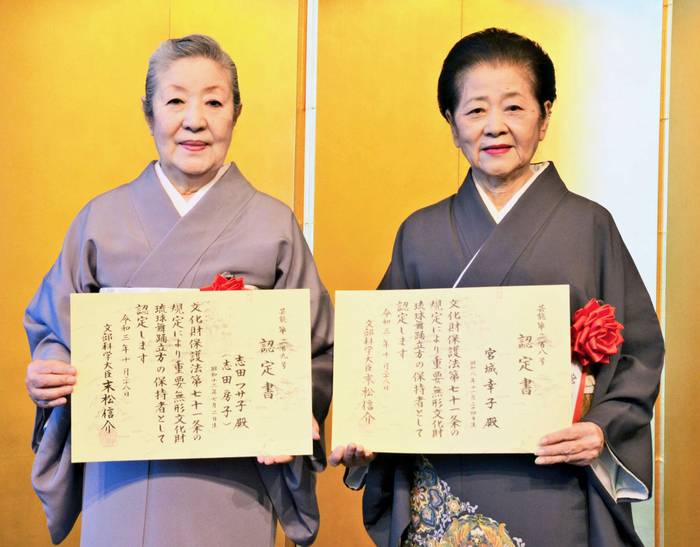 芸能第二百九号
認定書
志田フサ子殿
(志田房子)
昭和十二年七月二日生
文化財保護法第七十一条の
規定により重要無形文化財
琉球舞踊立方の保持者として
認定します
令和三年十月二十八日
文部科学大臣 末松信介
芸能第二百八号
認定書
宮城幸子殿
文化財保護法第七十一条の
規定により重要無形文化財
琉球舞踊立方の保持者として
認定します
令和三年十月二十八日
文部科学大臣 末松信介